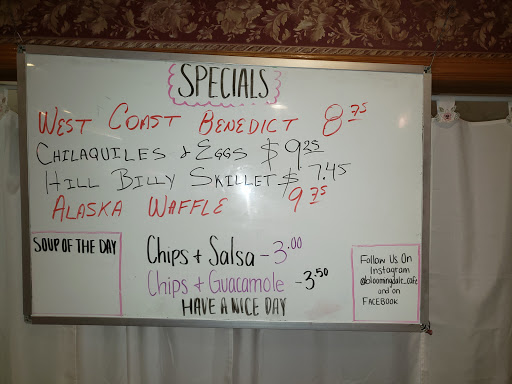 SPECIALS
WEST COAST BENEDICT 8.75
CHILAQUILES & EGGS $9.25
HILL BILLY SKILLET $7.45
ALASKA WAFFLE 9.75
SOUP OF THE DAY
Chips + Salsa - 3.00
Chips + Guacamole - 3.50
HAVE A NICE DAY
Follow Us On
Instagram
@bloomingdale_cafe
and on
FACEBOOK